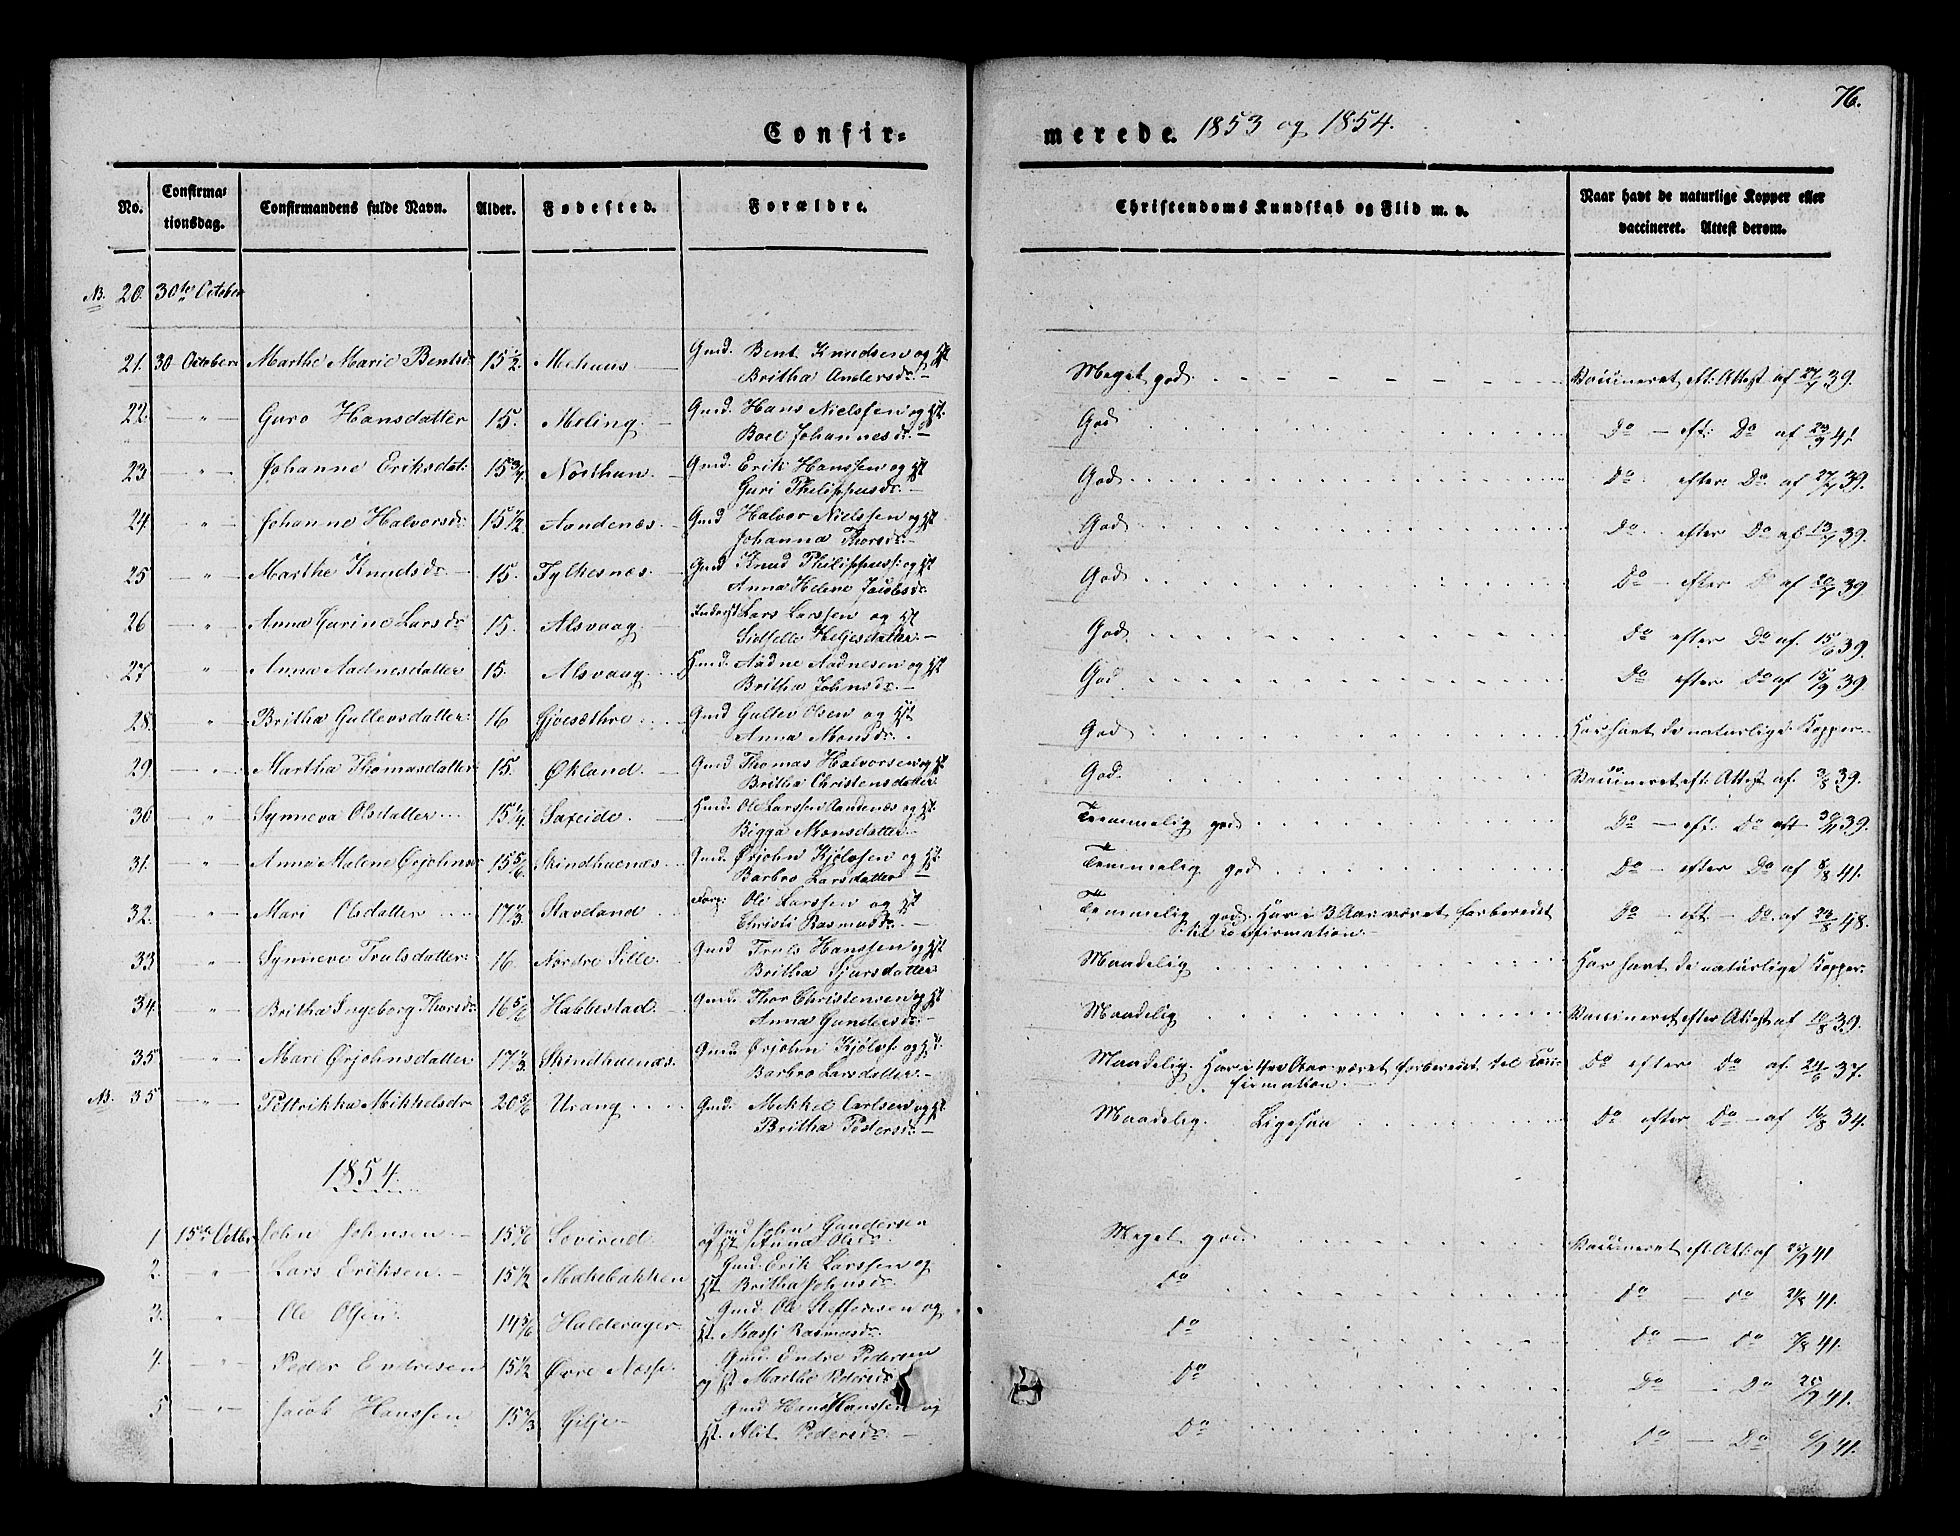 76.
Confir=
merede. 1853 og 1854.
No. Confirma= tionsdag. Confirmandens fulde Navn. Alder. Fødested. Forældre. Christendoms Kundskab og Flid m. v. Naar havt de naturlige Kopper eller vaccineret. Attest derom.
NB. 20. 30te October
21. 30 October Marthe Marie Bentsdr 15½. Mehuus Gmd. Bent Knudsen og Hst Britha Andersdr. Meget god Vaccineret eft: Attest af 39.
22. " Guro Hansdatter 15. Meling Gmd. Hans Nielssen og Hst. Boel Johannesdr. God Do eft: Do af 41
23 " Johanne Eriksdat: 15¾. Northun Gmd. Erik Hanssen og Hst Guri Philippusdr. God Do efter Do af 27/7 39.
24 " Johanne Halvorsdr 15½ Aandenæs Gmd Halvor Nielssen og Hst Johanna Thorsdr. God Do efter Do af 39.
25 " Marthe Knudsdr 15. Fylkesnæs Gmd Knud Philippuss: og Hst Anna Helene Jacobsdr God Do efter Do af 39
26 " Anna Gurine Larsdr 15. Alsvaag Inderst Lars Larssen og Hst Sidselle Helgesdatter God Do efter Do af 39.
27 " Anna Aadnesdatter 15. Alsvaag Hmd. Aadne Aadnesen og Hst Britha Johnsdr. God Do efter Do af 39.
28. " Britha Gullevsdatter 16 Gjvesæthre Gmd Gullev Olsen og Hst Anna Monsdr. God Har havt de naturlige Kopper
29 " Martha Thomasdatter 15. Økland Gmd Thomas Halvorsen og Hst Britha Christensdatter God. Vaccineret eft: Attest af 39.
30 " Synneva Olsdatter 15¼. Saxeide Hmd. Ole Larssen Aandenæs og Hst. Bigga Monsdatter Temmelig god Do eft: Do af 39.
31. " Anna Malene Ørjohnsdr 15 5/6 Skindhuenæs Gmd. Ørjohn Kjølvsen og Hst. Barbro Larsdatter Temmelig god Do efter Do af 8/8 41.
32. " Mari Olsdatter 17⅓. Stavland Forp: Ole Larssen og Hst Christi Rasmusdr. Temmelig god. Har i 3 Aar været forberedet til Confirmation. Do eft Do. af 48.
33. " Synneve Trulsdatter 16. Nordre Sille Gmd Truls Hanssen og Hst Britha Sjursdatter Maadelig Har havt de naturlige Kopper.
34. " Britha Ingeborg Thorsdr 16 5/6 Habbestad Gmd: Thor Christensen og Hst Anna Gundersdr. Maadelig Vaccineret efter Attest af 39.
35 " Mari Ørjohnsdatter 17⅓. Skindhuenæs. Gmd: Ørjohn Kjølvs: og Hst. Barbro Larsdatter. Maadelig. Har i tre Aar været forberedet til Con= firmation. Do efter Do af 37.
NB. 35 " Pettrikka Mikkelsdr 20 5/6 Urang Gmd: Mekkel Carlsen og Hst. Britha Pedersdr. Maadelig. Ligesaa Do efter Do af 34.
1854.
1 15de Octbr John Johnsen 15 5/6 Søvirud Gmd John Gundersen og Hst Anna Olsdr. Meget god Vaccineret eft: Att: af 41
2. " Lars Eriksen 15½ Mækebakken Gmd. Erik Larssen og Hst Britha Johnsdr. Do Do Do 41.
3. " Ole Olsen 14 5/6 Halderager Gmd. Ole Steffensen og Hst Massi Rasmusdr. Do Do Do 41.
4. " Peder Endresen 15½ Øvre Næss. Gmd. Endre Pedersen og Hst Marthe Do Do Do 41.
5 " Jacob Hanssen 15⅔ Gilje Gmd Hans Hanssen og Hst. Alit Pedersdr. Do Do Do 41.